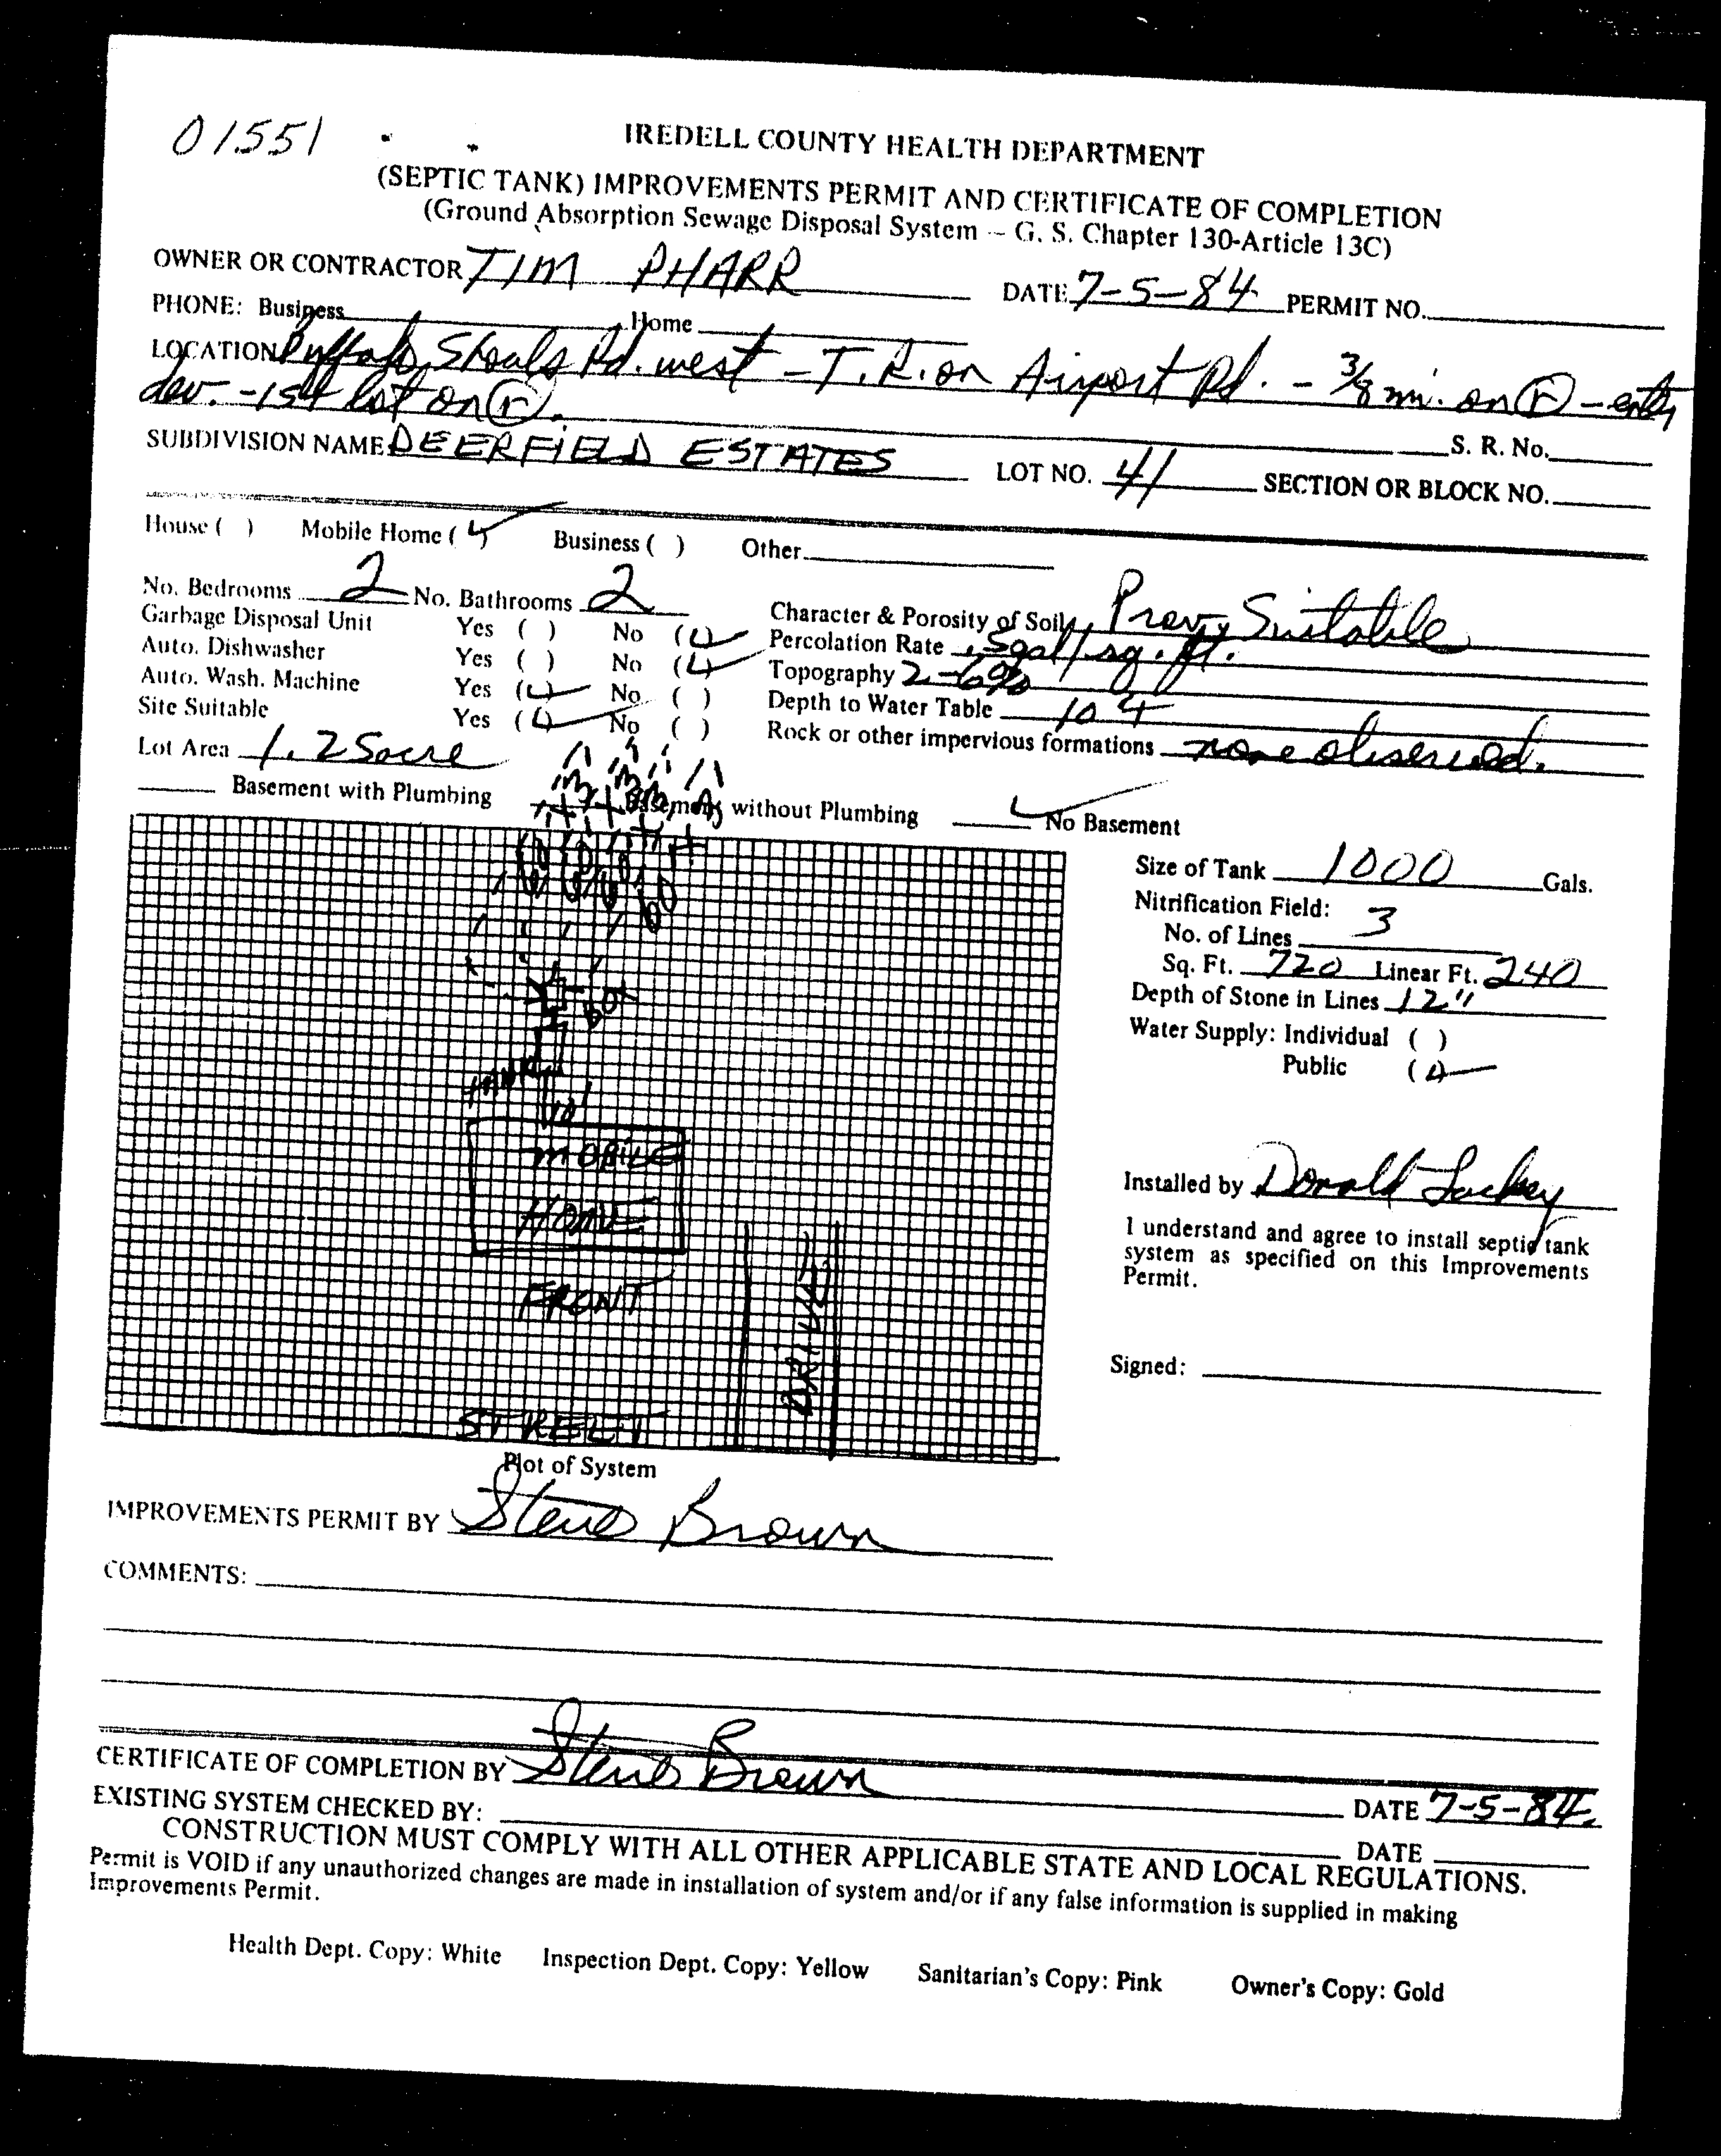 01551
IREDELL COUNTY HEALTH DEPARTMENT
(SEPTIC TANK) IMPROVEMENTS PERMIT AND CERTIFICATE OF COMPLETION
(Ground Absorption Sewage Disposal System -- G. S. Chapter 130-Article 13C)
OWNER OR CONTRACTOR TIM PHARR DATE 7-5-84 PERMIT NO.
PHONE: Business Home
LOCATION Buffalo Shoals Rd. west - T.R. on Airport Rd. - 3/8 mi. on (r) - enter
dev. - 1st lot on (r).
S. R. No.
SUBDIVISION NAME DEERFIELD ESTATES LOT NO. 41 SECTION OR BLOCK NO.
House ( ) Mobile Home (✓) Business ( ) Other
No. Bedrooms 2 No. Bathrooms 2 Character & Porosity of Soil Prov. Suitable
Garbage Disposal Unit Yes ( ) No (✓) Percolation Rate .5gal/sq. ft.
Auto. Dishwasher Yes ( ) No (✓) Topography 2-6%
Auto. Wash. Machine Yes (✓) No ( ) Depth to Water Table
Site Suitable Yes (✓) No ( ) Rock or other impervious formations none observed.
Lot Area 1.25acre
Basement with Plumbing Basement without Plumbing ✓ No Basement
Size of Tank 1000 Gals.
Nitrification Field:
No. of Lines 3
Sq. Ft. 720 Linear Ft. 240
Depth of Stone in Lines 12"
Water Supply: Individual ( )
Public (✓)
60' 60' 60'
BOX
TANK
10'
MOBILE
HOME
FRONT
DRIVE
STREET
Installed by Donald Lackey
I understand and agree to install septic tank
system as specified on this Improvements
Permit.
Signed:
Plot of System
IMPROVEMENTS PERMIT BY Steve Brown
COMMENTS:
CERTIFICATE OF COMPLETION BY Steve Brown DATE 7-5-84
EXISTING SYSTEM CHECKED BY: DATE
CONSTRUCTION MUST COMPLY WITH ALL OTHER APPLICABLE STATE AND LOCAL REGULATIONS.
Permit is VOID if any unauthorized changes are made in installation of system and/or if any false information is supplied in making
Improvements Permit.
Health Dept. Copy: White Inspection Dept. Copy: Yellow Sanitarian's Copy: Pink Owner's Copy: Gold